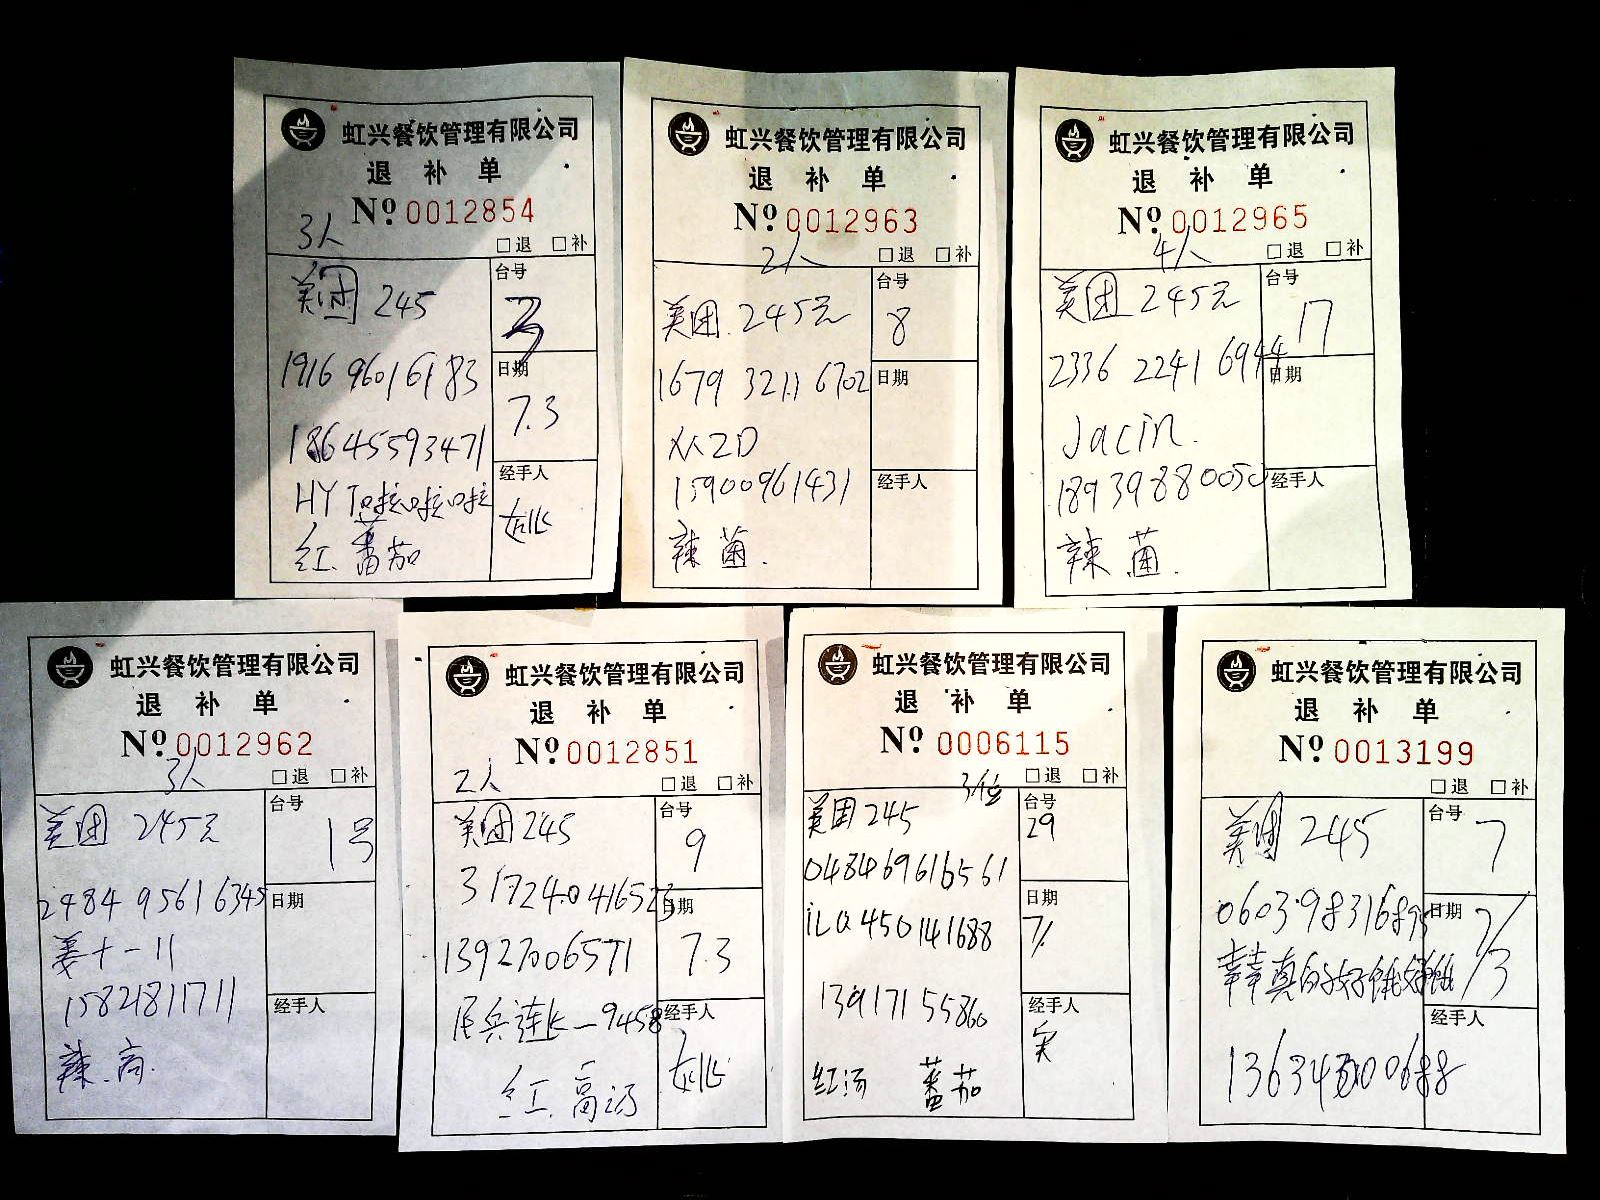 虹兴餐饮管理有限公司
退 补 单
Nº 0012854
3人
□退 □补
美团 245
台号
3
1916 9601 6183
日期
7.3
18645593471
经手人
HY
红. 番茄
虹兴餐饮管理有限公司
退 补 单
Nº 0012963
2人
□退 □补
美团. 245元
台号
8
1679 3211 6702
日期
15900961431
经手人
辣 菌.
虹兴餐饮管理有限公司
退 补 单
Nº 0012965
4人
□退 □补
美团 245元
台号
17
2336 2241 6944
日期
Jacin.
18939880050
经手人
辣 菌.
虹兴餐饮管理有限公司
退 补 单
Nº 0012962
3人
□退 □补
美团 245元
台号
1号
2484 9561 6345
日期
姜十一11
15821811711
经手人
辣.高.
虹兴餐饮管理有限公司
退 补 单
Nº 0012851
2人
□退 □补
美团 245
台号
9
日期
7.3
13927006571
民兵连长-9458
经手人
红. 高汤
虹兴餐饮管理有限公司
退 补 单
Nº 0006115
3位
□退 □补
美团 245
台号
29
048469616561
日期
450141688
13917155860
经手人
红汤 番茄
虹兴餐饮管理有限公司
退 补 单
Nº 0013199
□退 □补
美团 245
台号
7
日期
7/3
经手人